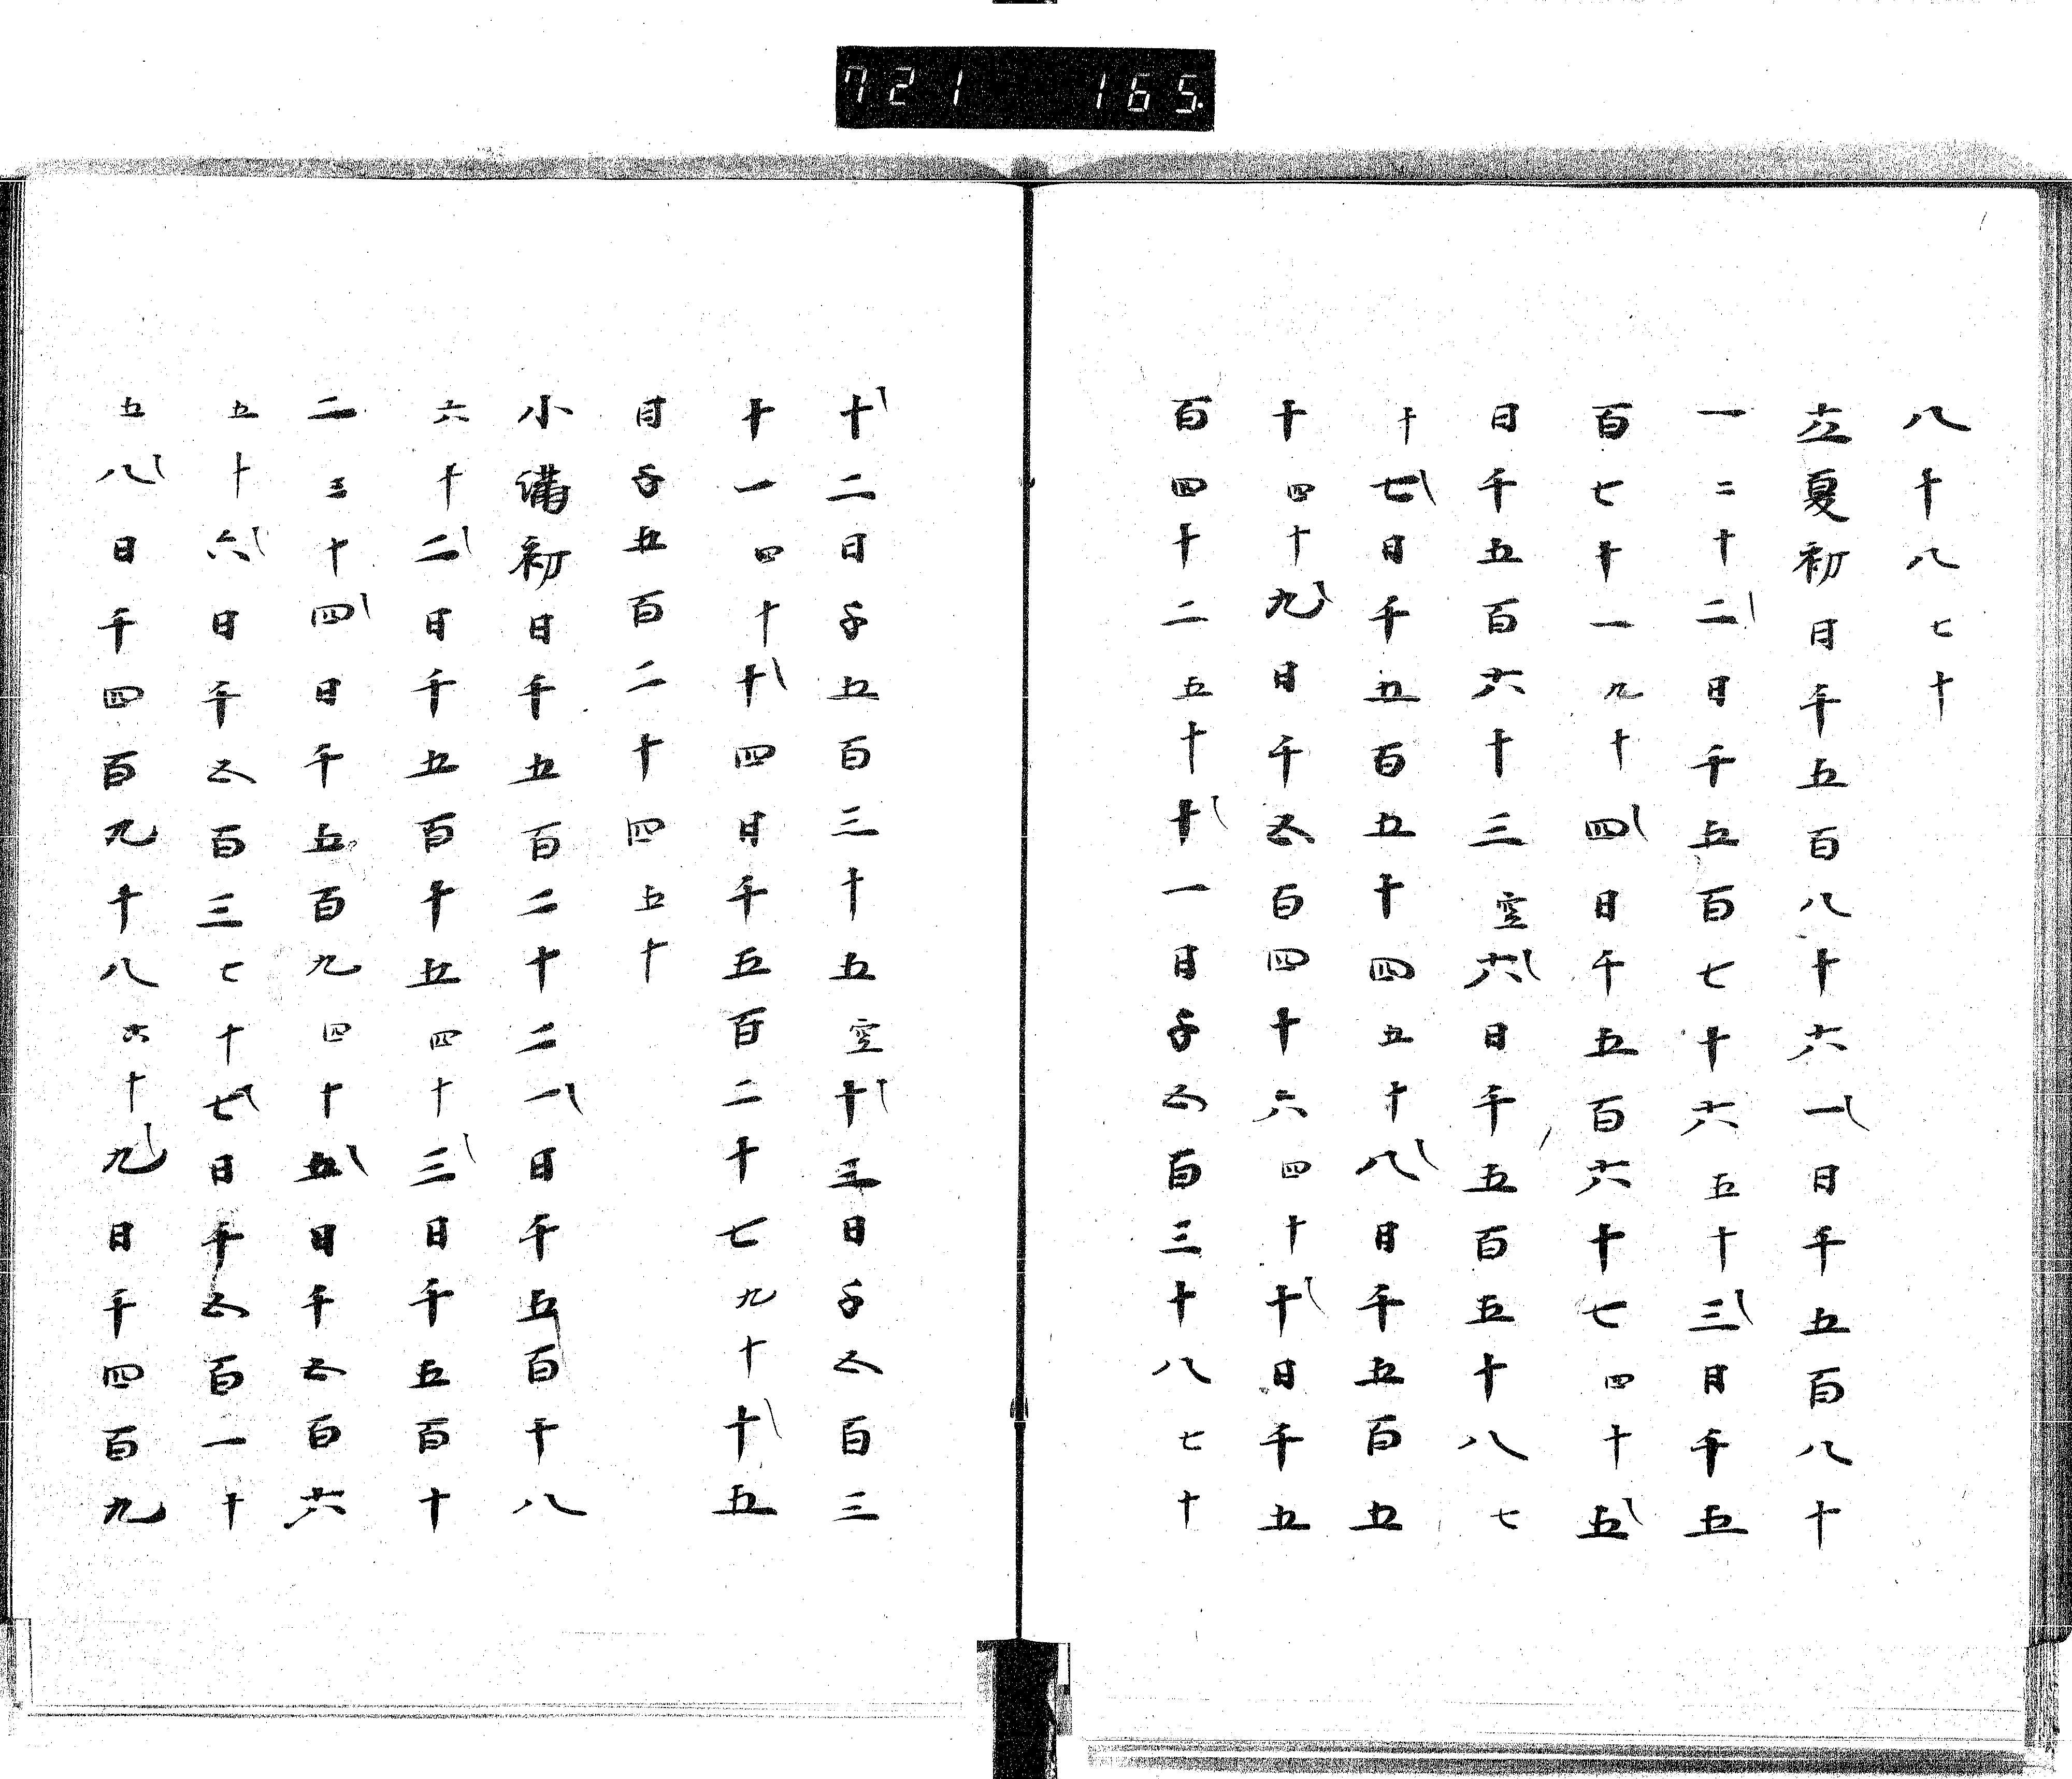 721 165.
八十八七十
立夏初日千五百八十六一日千五百八十
一二十二日千五百七十六五十三日千五
百七十一九十四日千五百六十七四十五
日千五百六十三空六日千五百五十八七
十七日千五百五十四五十八日千五百五
十四十九日千五百四十六四十十日千五
百四十二五十十一日千五百三十八七十
十二日千五百三十五空十三日千五百三
十一四十十四日千五百二十七九十十五
日千五百二十四五十
小滿初日千五百二十二一日千五百十八
六十二日千五百十五四十三日千五百十
二三十四日千五百九四十五日千五百六
五十六日千五百三七十七日千五百一十
五八日千四百九十八六十九日千四百九